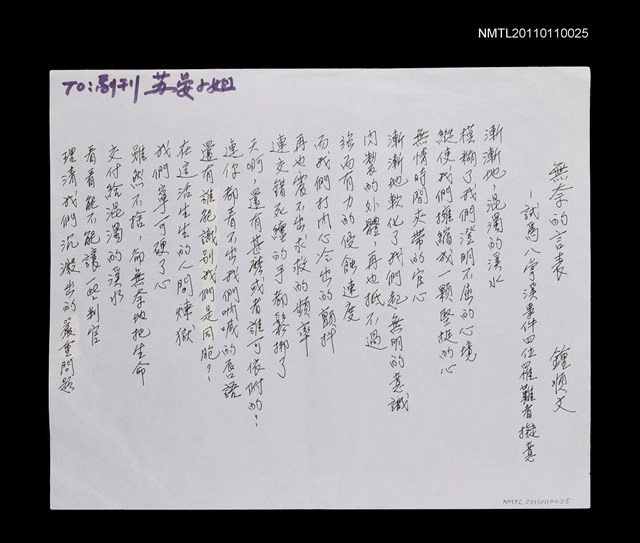 NMTL20110110025
TO:副刊 苏晏小姐
無奈的言表 鍾順文
-試為八掌溪事件四位罹難者擬意
漸漸地,混濁的溪水
模糊了我們澄明不屈的心境
縱使我們擁縮成一顆堅挺的心
無情時間夾帶的官心
漸漸地軟化了我們起無明的意識
肉製的外體,再也抵不過
強而有力的侵蝕速度
而我們打內心冷出的顫抖
再也震不出求救的頻率
連交錯死纏的手都鬆挷了
天啊,還有甚麼或者誰可依附的?
連你都看不出我們吶喊的唇語
還有誰能識別我們是同胞?
在這活生生的人間煉獄
我們寧可硬了心
雖然不捨,卻無奈地把生命
交付給混濁的溪水
看看能不能讓一些判官
理清我們沉澱出的嚴重問題
NMTL 20110110025